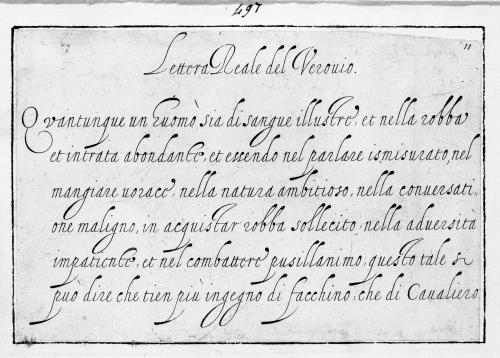 497
11
Lettera Reale del Verouio.
Quantunque un huomò sia di sangue illustre, et nella robba
et intrata abondante, et essendo nel parlare ismisurato, nel
mangiare uorace, nella natura ambitioso, nella conuersati-
one maligno, in acquistar robba sollecito, nella aduersità
impatiente, et nel combattere pusillanimo, questo tale si
può dire che tien più ingegno di facchino, che di Caualiero